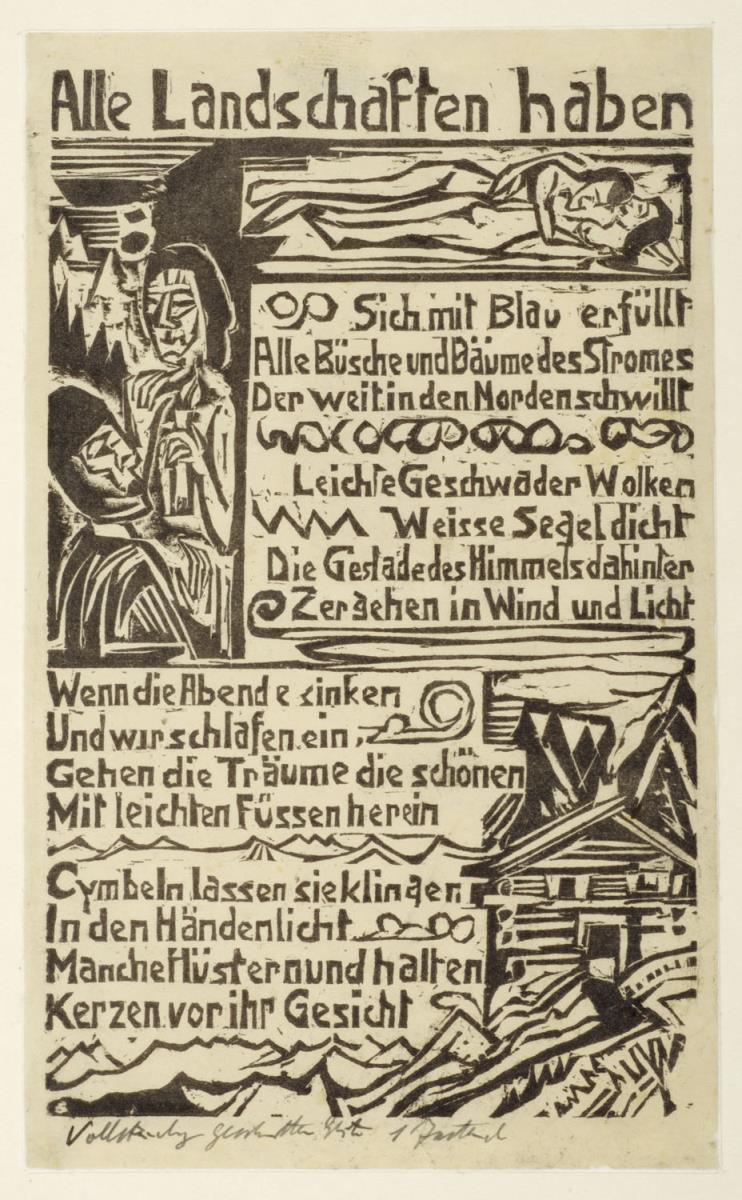 Alle Landschaften haben
Sich mit Blau erfüllt
Alle Büsche und Bäume des Stromes
Der weit in den Norden schwillt
Leichte Geschwader Wolken
Weisse Segel dicht
Die Gestade des Himmels dahinter
Zergehen in Wind und Licht
Wenn die Abende sinken
Und wir schlafen ein,
Gehen die Träume die schönen
Mit leichten Füssen herein
Cymbeln lassen sie klingen
In den Händen licht
Manche flüstern und halten
Kerzen vor ihr Gesicht